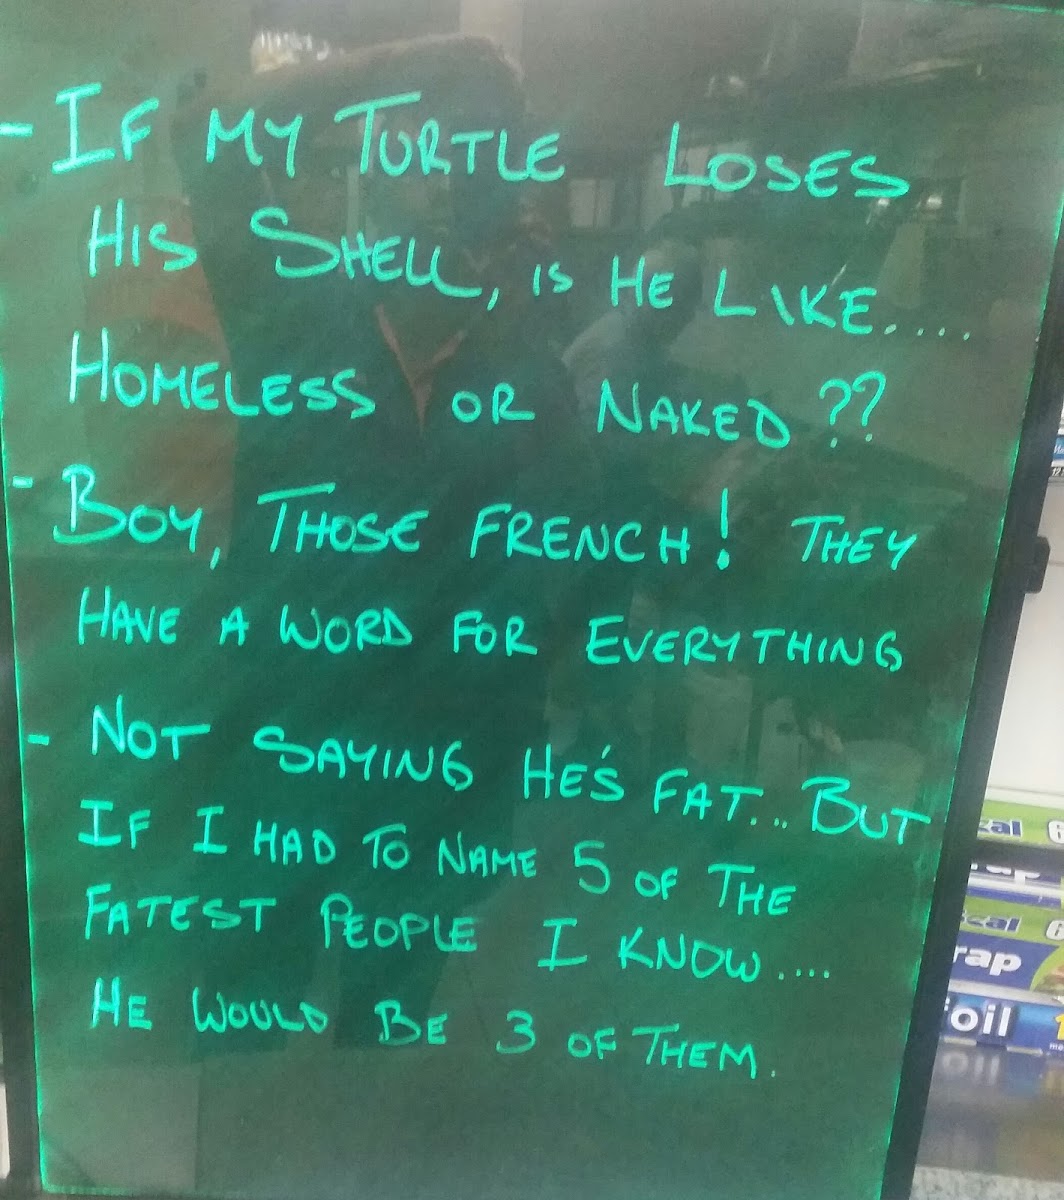 - IF MY TURTLE LOSES
HIS SHELL, IS HE LIKE....
HOMELESS OR NAKED??
- BOY, THOSE FRENCH! THEY
HAVE A WORD FOR EVERYTHING
- NOT SAYING HE'S FAT... BUT
IF I HAD TO NAME 5 OF THE
FATEST PEOPLE I KNOW....
HE WOULD BE 3 OF THEM.
rap
foil